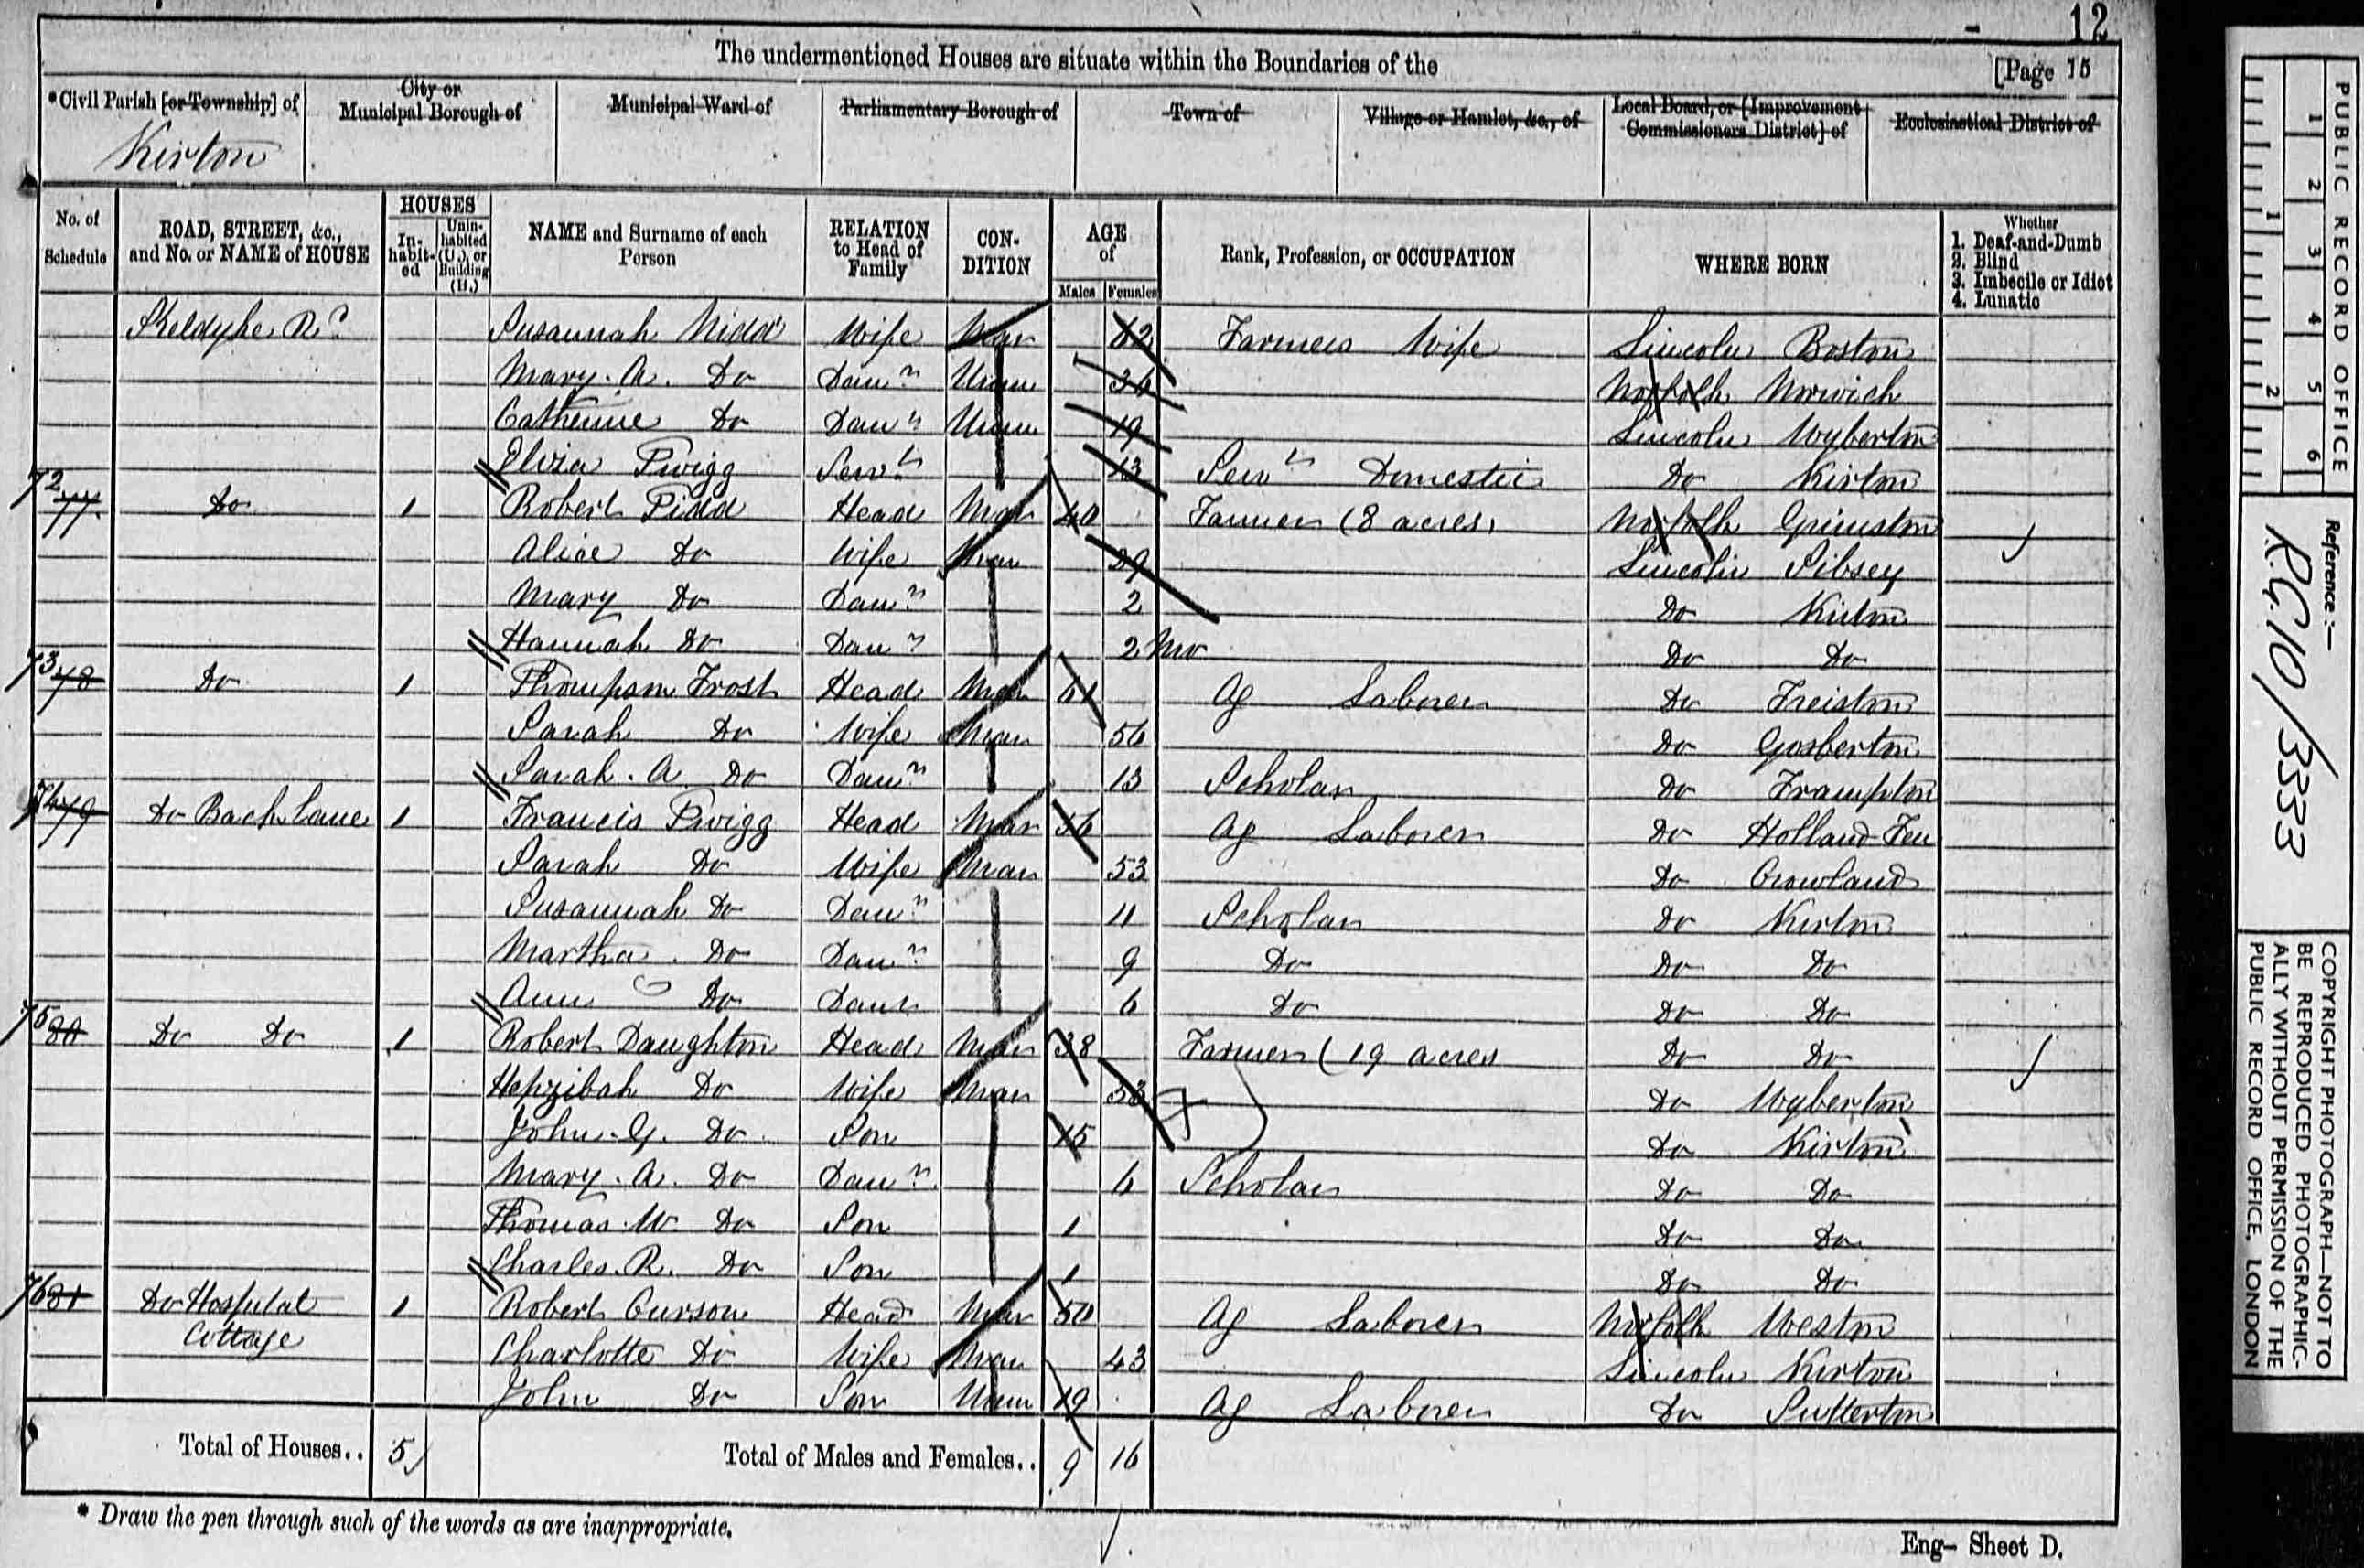 12
The undermentioned Houses are situate within the Boundaries of the
[Page 15
*Civil Parish [or Township] of
City or Municipal Borough of
Municipal Ward of
Parliamentary Borough of
Town of
Village or Hamlet, &c., of
Local Board, or [Improvement Commissioners District] of
Ecclesiastical District of
Kirton
No. of Schedule
ROAD, STREET, &c., and No. or NAME of HOUSE
HOUSES
In-habit-ed
Unin-habited (U.), or Building (B.)
NAME and Surname of each Person
RELATION to Head of Family
CON-DITION
AGE of
Males
Females
Rank, Profession, or OCCUPATION
WHERE BORN
Whether
1. Deaf-and-Dumb
2. Blind
3. Imbecile or Idiot
4. Lunatic
Skeldyke Rd Susannah Nidd Wife Mar 62 Farmers Wife Lincoln Boston
Mary. A. Do Daur Unm 34 Norfolk Norwich
Catherine Do Daur Unm 19 Lincoln Wyberton
Eliza Twigg Servt 13 Servt Domestic Do Kirton
72 77 Do 1 Robert Pidd Head Mar 40 Farmer (8 acres) Norfolk Grimston
Alice Do Wife Mar 29 Lincoln Sibsey
Mary Do Daur 2 Do Kirton
Hannah Do Daur 2 Mo Do Do
73 78 Do 1 Thompson Frost Head Mar 61 Ag Laborer Do Freiston
Sarah Do Wife Mar 56 Do Gosberton
Sarah. A Do Daur 13 Scholar Do Frampton
74 79 Do Back Lane 1 Francis Twigg Head Mar 56 Ag Laborer Do Holland Fen
Sarah Do Wife Mar 53 Do Crowland
Susannah Do Daur 11 Scholar Do Kirton
Martha. Do Daur 9 Do Do Do
Ann Do Daur 6 Do Do Do
75 80 Do Do 1 Robert Daughton Head Mar 38 Farmer (19 acres Do Do
Hepzibah Do Wife Mar Do Wyberton
John. G. Do Son 15 Do Kirton
Mary. A. Do Daur 6 Scholar Do Do
Thomas. W. Do Son 1 Do Do
Charles. R. Do Son 1 Do Do
76 81 Do Hospital 1 Robert Curson Head Mar 50 Ag Laborer Norfolk Weston
Cottage Charlotte Do Wife Mar 43 Lincoln Kirton
John Do Son Unm 19 Ag Laborer Do Sutterton
Total of Houses.. 5
Total of Males and Females.. 9 16
* Draw the pen through such of the words as are inappropriate.
Eng- Sheet D.
PUBLIC RECORD OFFICE
1 2 3 4 5 6
1 2
Reference :-
R.G.10/333
COPYRIGHT PHOTOGRAPH—NOT TO
BE REPRODUCED PHOTOGRAPHIC-
ALLY WITHOUT PERMISSION OF THE
PUBLIC RECORD OFFICE, LONDON